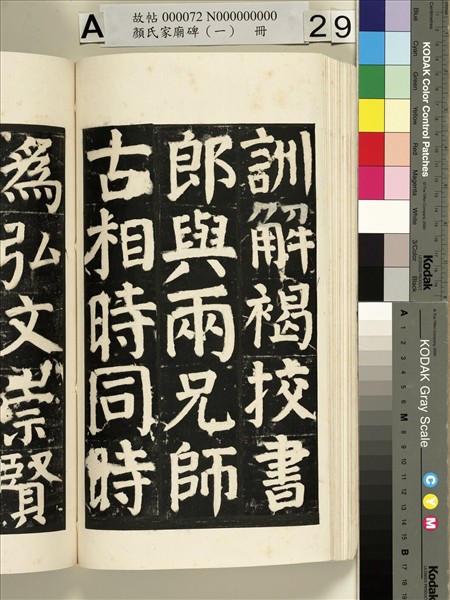 A
故帖 000072 N000000000
顏氏家廟碑（一） 冊
29
訓解褐挍書
郎與兩兄師
古相時同時
為弘文崇賢
KODAK Color Control Patches
Blue
Cyan
Green
Yellow
Red
Magenta
White
3/Color
Black
Kodak
KODAK Gray Scale
C
Y
M
Kodak
A
1
2
3
4
5
6
M
8
9
10
11
12
13
14
15
B
17
18
19